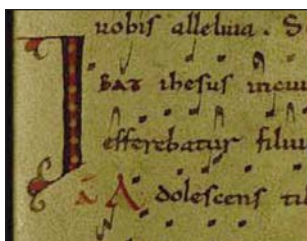 nobis alleluia. S
IBAT ihesus in ciui
efferebatur filiu
A Adolescens ti